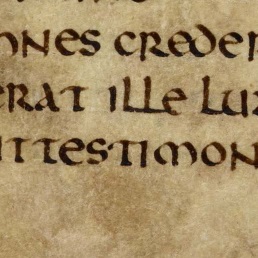 ONES CREDER
ERAT ILLE LUX
UTTESTIMON